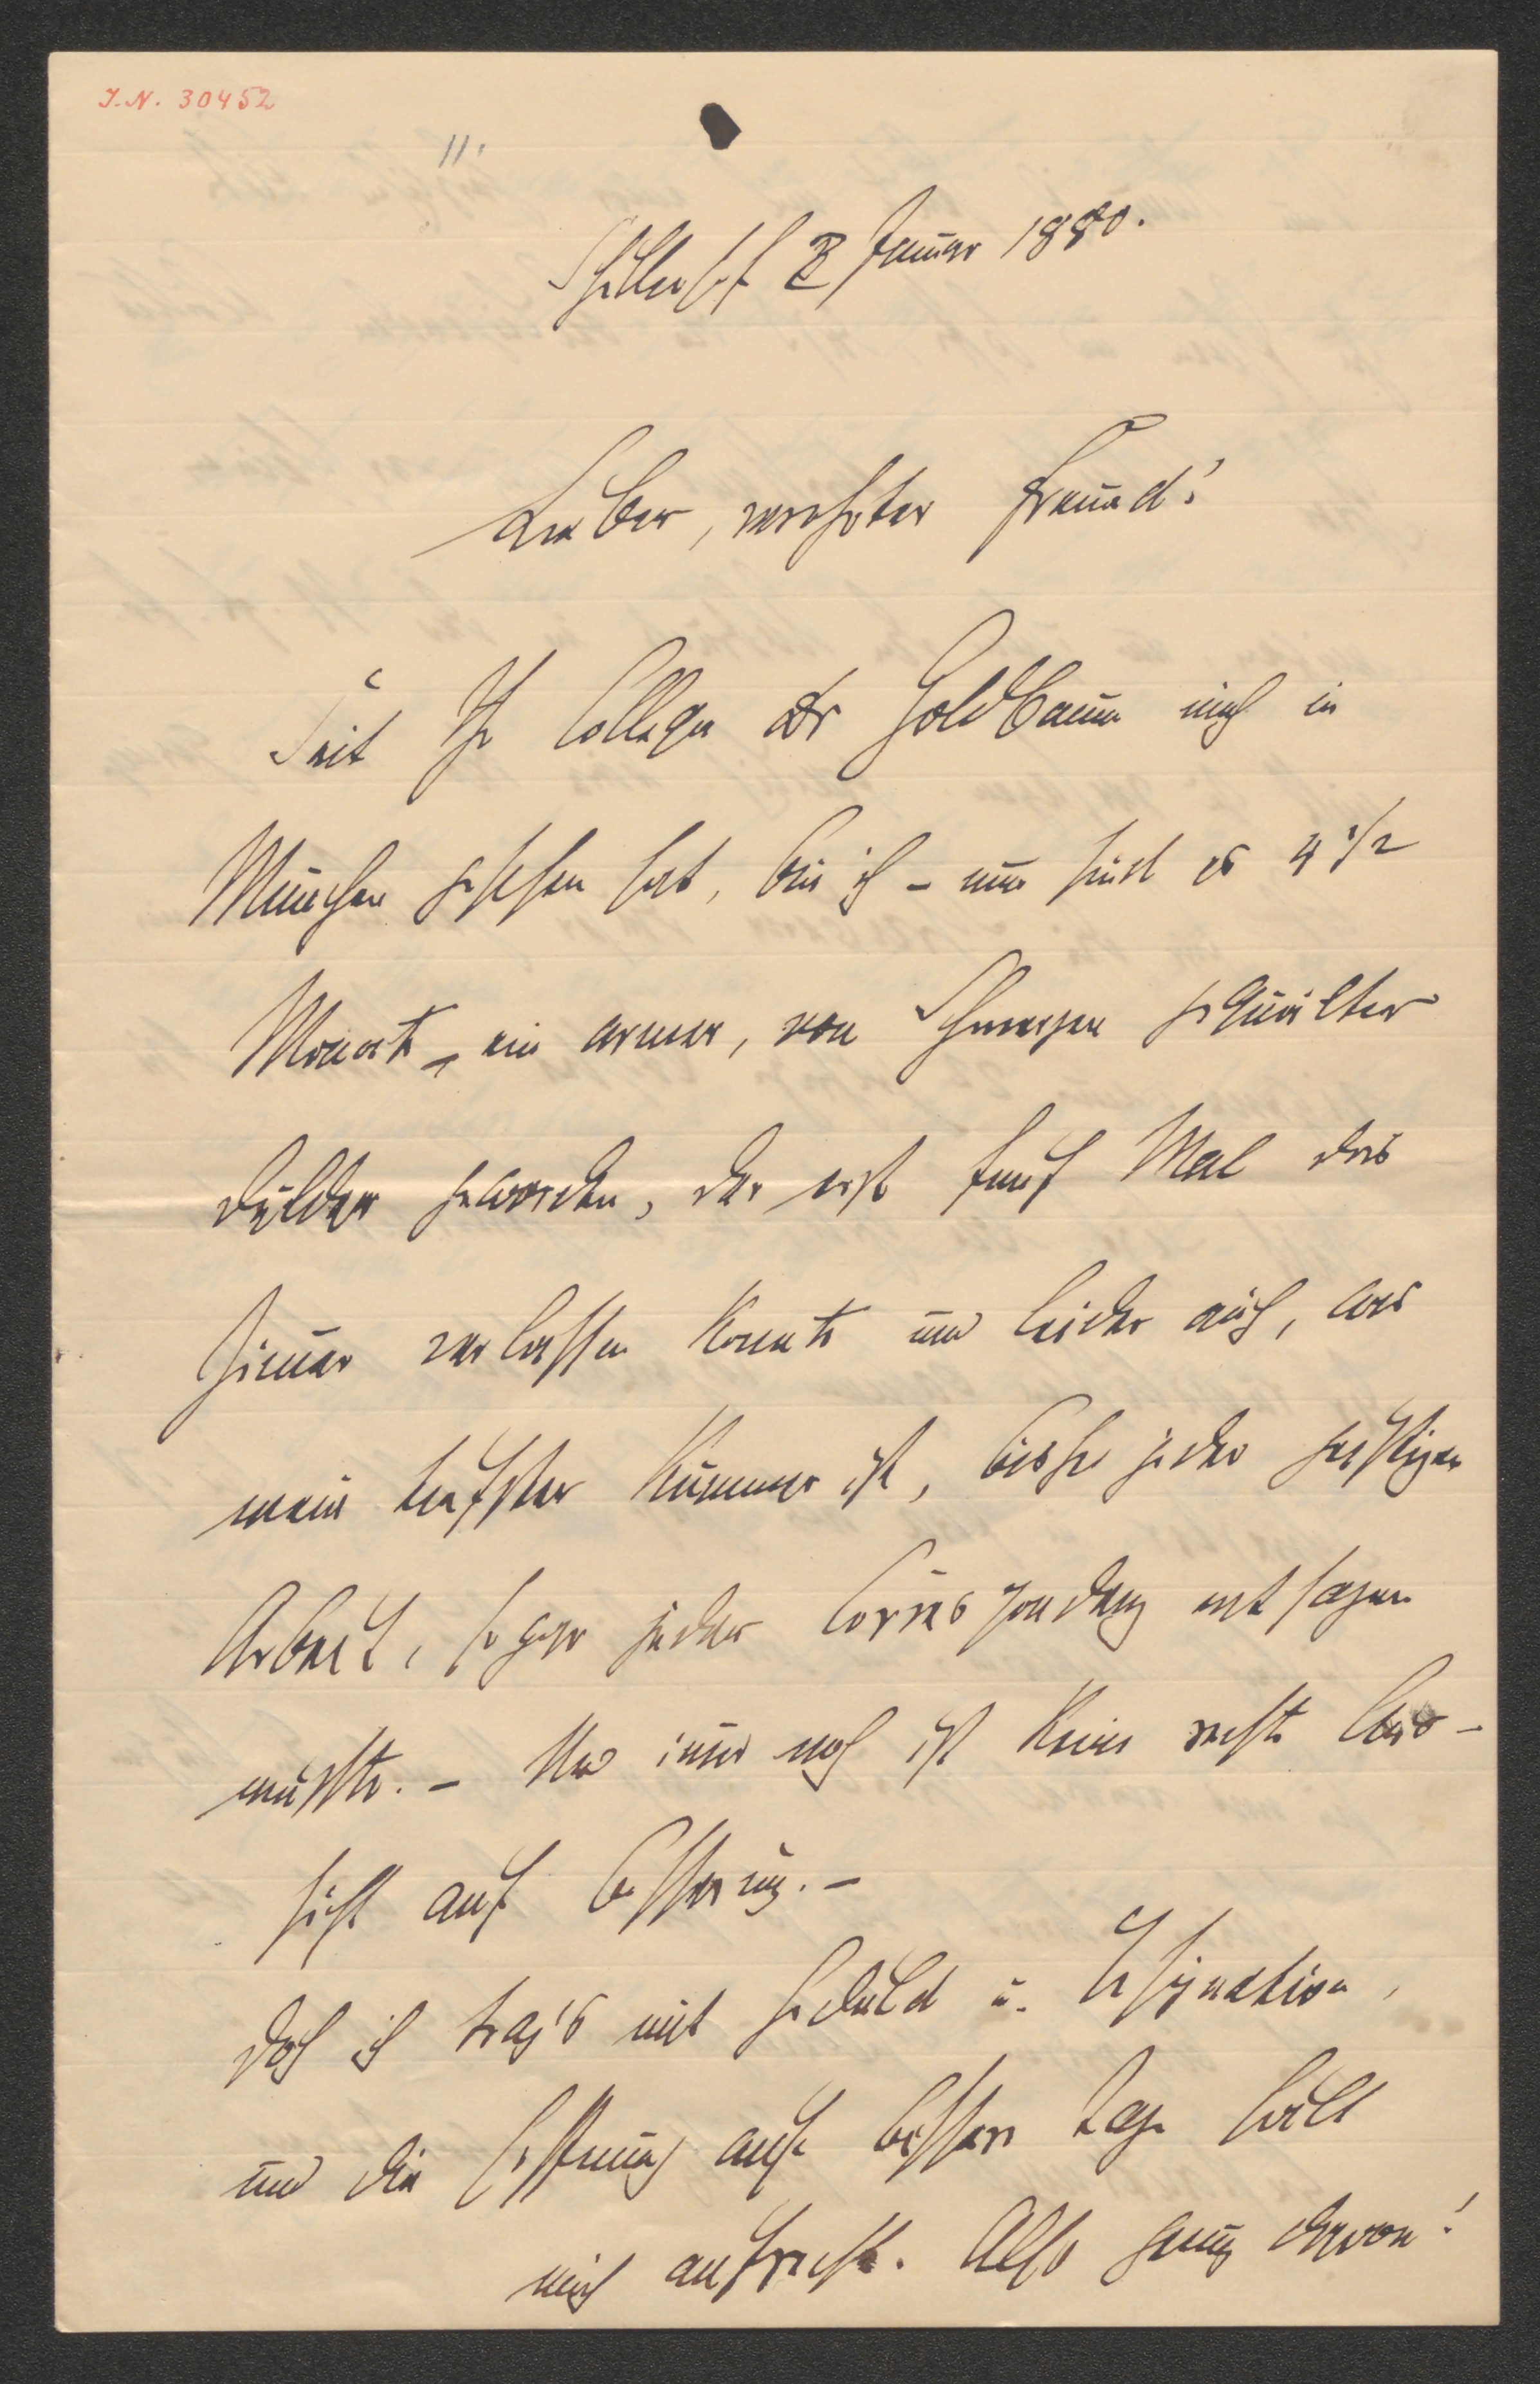 J.N. 30452
11.
Schillerhof 3 Januar 1880.
Lieber, verehrter Freund!
Seit Ihr College Dr Goldbaum mich in
München gesehen hat, bin ich – nun sind es 4 1/2
Monate – ein armer, von Schmerzen gequälter
Dulder geworden, der erst fünf Mal das
Zimmer verlassen konnte und leider auch, was
mein tiefster Kummer ist, bisher jeder geistigen
Arbeit, sogar jeder Correspondenz entsagen
mußte. – Und immer noch ist keine rechte Aus-
sicht auf Besserung. –
Doch ich trag's mit Geduld u. Resignation,
und die Hoffnung auf bessere Tage hält
mich aufrecht. Also genug davon!